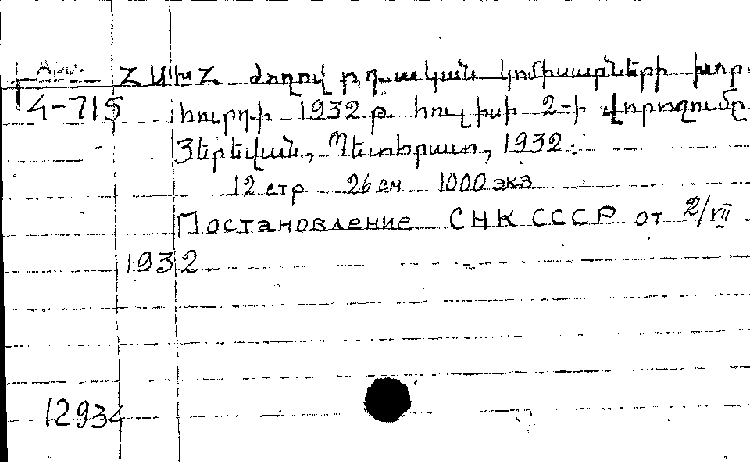 Арм. ՀՍԽՀ Ժողովրդական կոմիսարների խոր-
4-715 հուրդի 1932 թ հուլիսի 2-ի վորոշումը
Յերեվան, Պետհրատ, 1932.
12 стр 26 см 1000 экз
Постановление СНК СССР от 2/VII
1932
12934